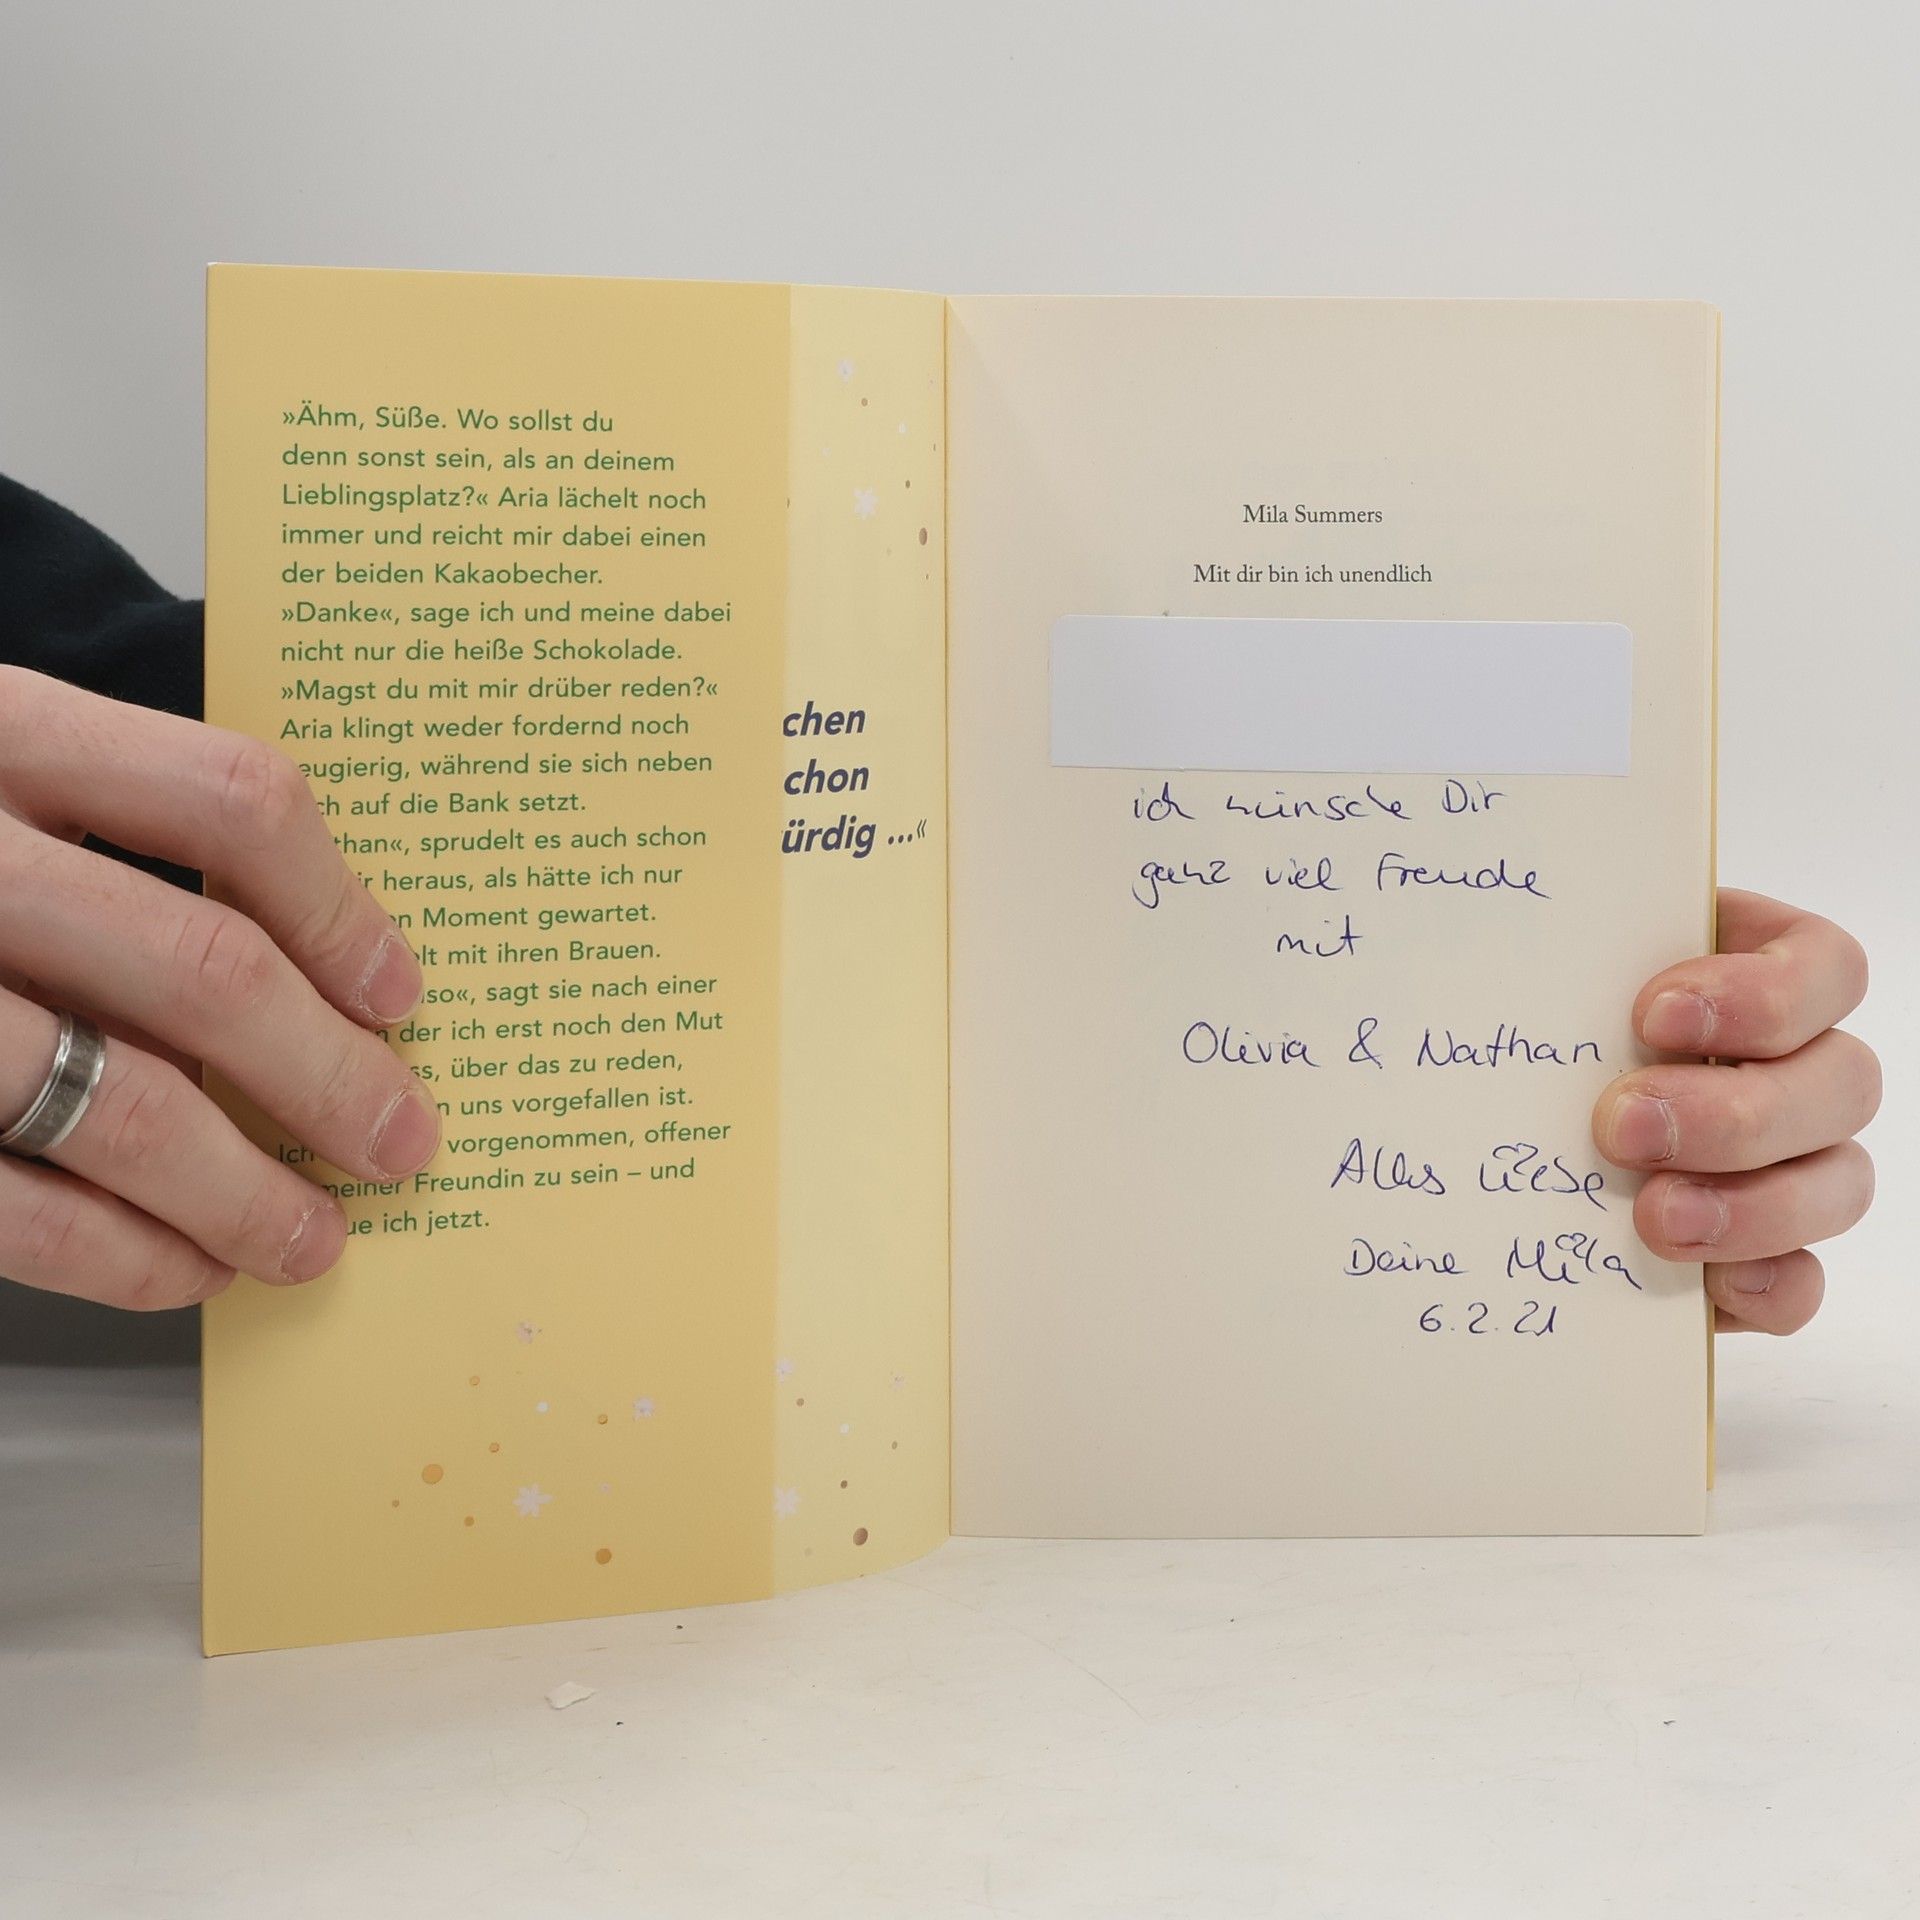 »Ähm, Süße. Wo sollst du
denn sonst sein, als an deinem
Lieblingsplatz?« Aria lächelt noch
immer und reicht mir dabei einen
der beiden Kakaobecher.
»Danke«, sage ich und meine dabei
nicht nur die heiße Schokolade.
»Magst du mit mir drüber reden?«
Aria klingt weder fordernd noch
eugierig, während sie sich neben
ch auf die Bank setzt.
than«, sprudelt es auch schon
ir heraus, als hätte ich nur
en Moment gewartet.
lt mit ihren Brauen.
lso«, sagt sie nach einer
n der ich erst noch den Mut
ss, über das zu reden,
n uns vorgefallen ist.
Ich vorgenommen, offener
meiner Freundin zu sein – und
ue ich jetzt.
chen
chon
ürdig ...«
Mila Summers
Mit dir bin ich unendlich
ich wünsche Dir
ganz viel Freude
mit
Olivia & Nathan
Alles Liebe
Deine Mila
6.2.21